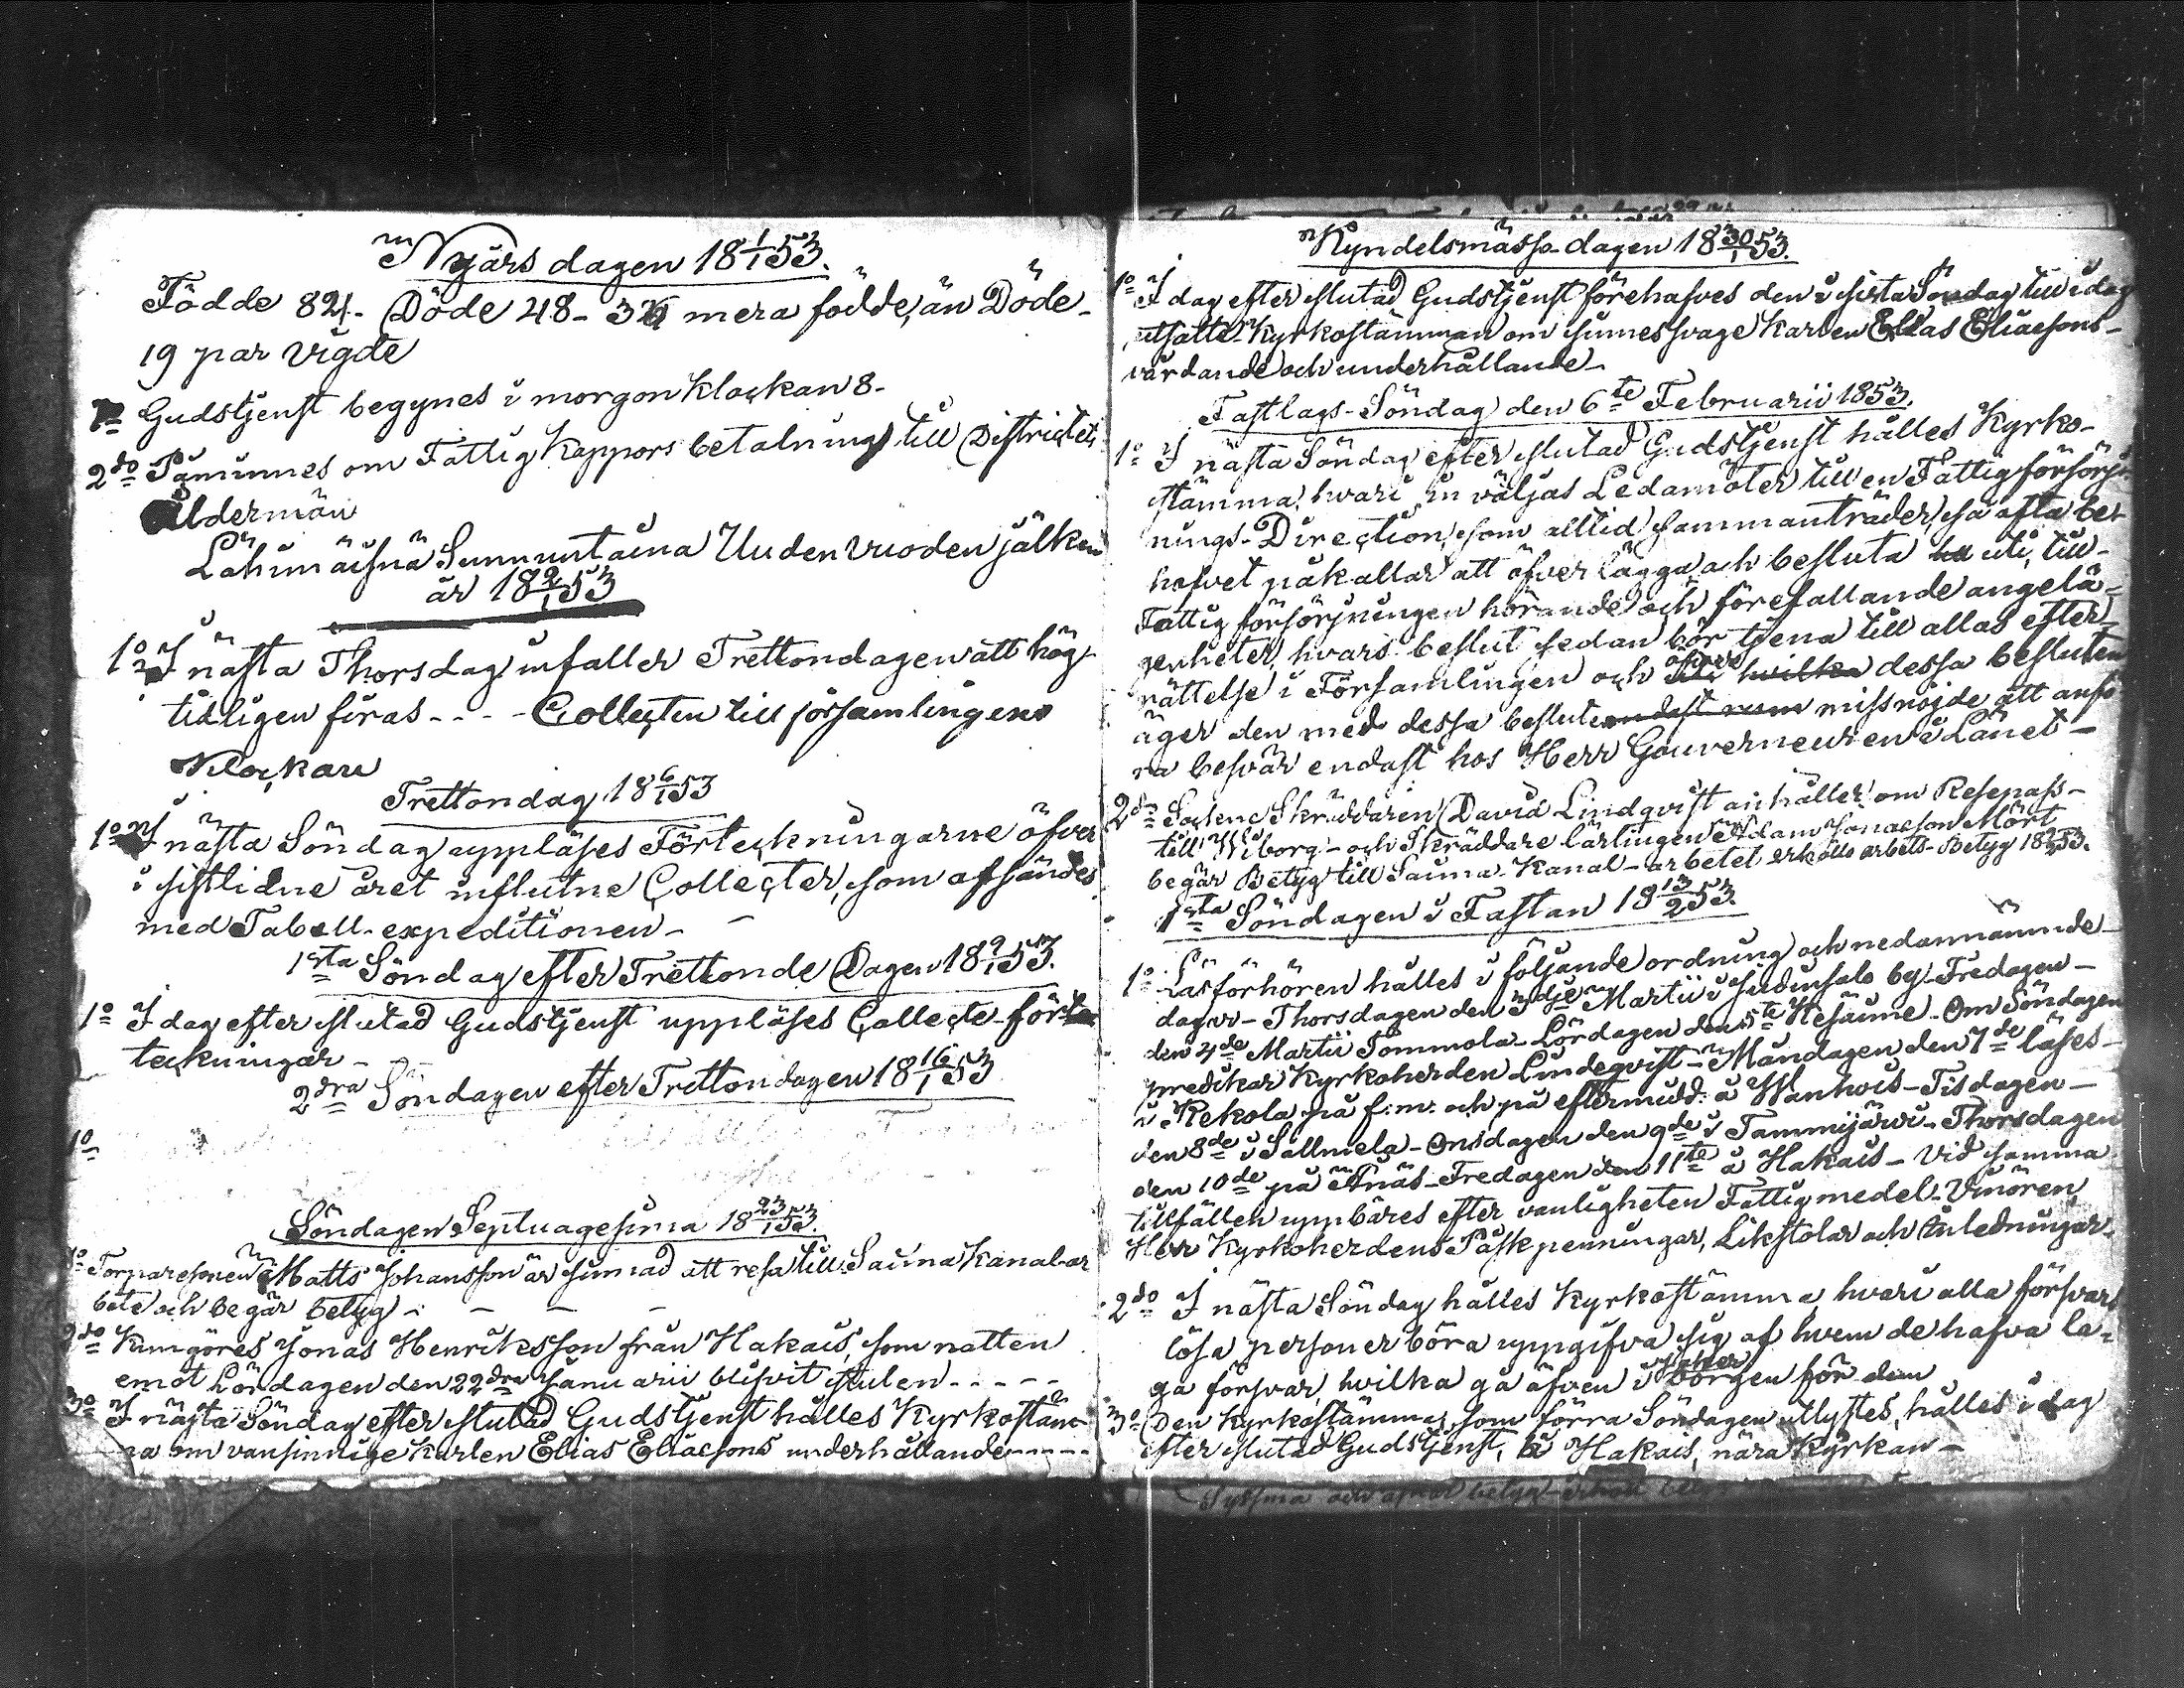 Nyårs dagen 18 1/1 53.
Födde 84. Döde 48 - 36 mera födde, än Döde -
19 par vigde
1o Gudstjenst begynes i morgon Klockan 8 -
2do Påminnes om Fattig Kappors betalning till Districtets
Åldermän
Lähimäisnä Sununtaina Uuden vuoden jälken
år 18 2/1 53
1o I nästa Thorsdag infaller Trettondagen att hög-
tidligen firas - - - - Collecten till församlingens
Klockare
Trettondag 18 6/1 53
1o I nästa Söndag uppläses Förteckningarne öfver
i sistlidne året influtne Collecter, som afsändes
med Tabell-expeditionen -
1sta Söndag efter Trettonde Dagen 18 9/1 53.
1o I dag efter slutad Gudstjenst uppläses Collecte-för
teckningar -
2dra Söndagen efter Trettondagen 18 16/1 53
1o
Söndagen Septuagesima 18 23/1 53.
1o Torparesonen Matts Johansson är sinnad att resa till Saima Kanal-ar
bete och begär betyg -
2do Kungöres Jonas Henriksson från Hakais, som natten
emot Lördagen den 22dra Januarii blifvit stulen - - - - -
3o I nästa Söndag efter slutad Gudstjenst hålles Kyrkostäm-
ma om vansinnige Karlen Elias Eliaesons underhållande - - - - -
Kyndelsmässo-dagen 18 30/1 53.
1o I dag efter slutad Gudstjenst förehafves den i sista Söndag till i dag
utsatte Kyrkostämman om sinnessvage Karlen Elias Eliaesons -
vårdande och underhållande -
Fastlags-Söndag den 6te Februarii 1853.
1o I nästa Söndag efter slutad Gudstjenst hålles Kyrko-
stämma, hvari, väljas Ledamöter till en Fattigförsörj-
nings-Direction, som alltid sammanträder, så ofta be-
hofvet påkallar att öfverlägga och besluta uti, till
Fattig försörjningen hörande och förefallande angelä-
genheter, hvars beslut sedan bör tjena till allas efter-
rättelse i Församlingen och öfver hvilka dessa besluten
äger den med dessa besluten endast missnöjde att anfö
ra besvär endast hos Herr Gouverneuren i Länet -
2do Sockne Skräddaren David Lindqvist anhåller om Resepass -
till Wiborg - och Skräddare lärlingen Adam Jonaeson Mört
begär Betyg till Saima-Kanal-arbetet erhölls arbets-Betyg 18 53.
1sta Söndagen i Fastan 18 13/2 53.
1o Läsförhören hålles i följande ordning och nedannämnde
dagar - Thorsdagen den 3dje Martii i by - Fredagen -
den 4de Martii Sommola - Lördagen den 5te - Om Söndagen
predikar Kyrkoherden Lindeqvist - Måndagen den 7de läses -
i Rekola på f:m: och på eftermidd: å Wanhois - Tisdagen -
den 8de i Sallmela - Onsdagen den 9de i Tammijärvi - Thorsdagen
den 10de på - Fredagen den 11te å Hakais - Vid samma
tillfällen uppbäres efter vanligheten Fattigmedel -
Herr Kyrkoherdens Påskpenningar, Likstolar och Inledningar.
2do I nästa Söndag hålles Kyrkostämma, hvari alla försvars
lösa personer böra uppgifva sig af hvem de hafva la-
ga försvar, hvilka gå äfven i säker borgen för dem
3o Den Kyrkostämma, som förra Söndagen utlystes, hålles i dag
efter slutad Gudstjenst, å Hakais, nära Kyrkan -